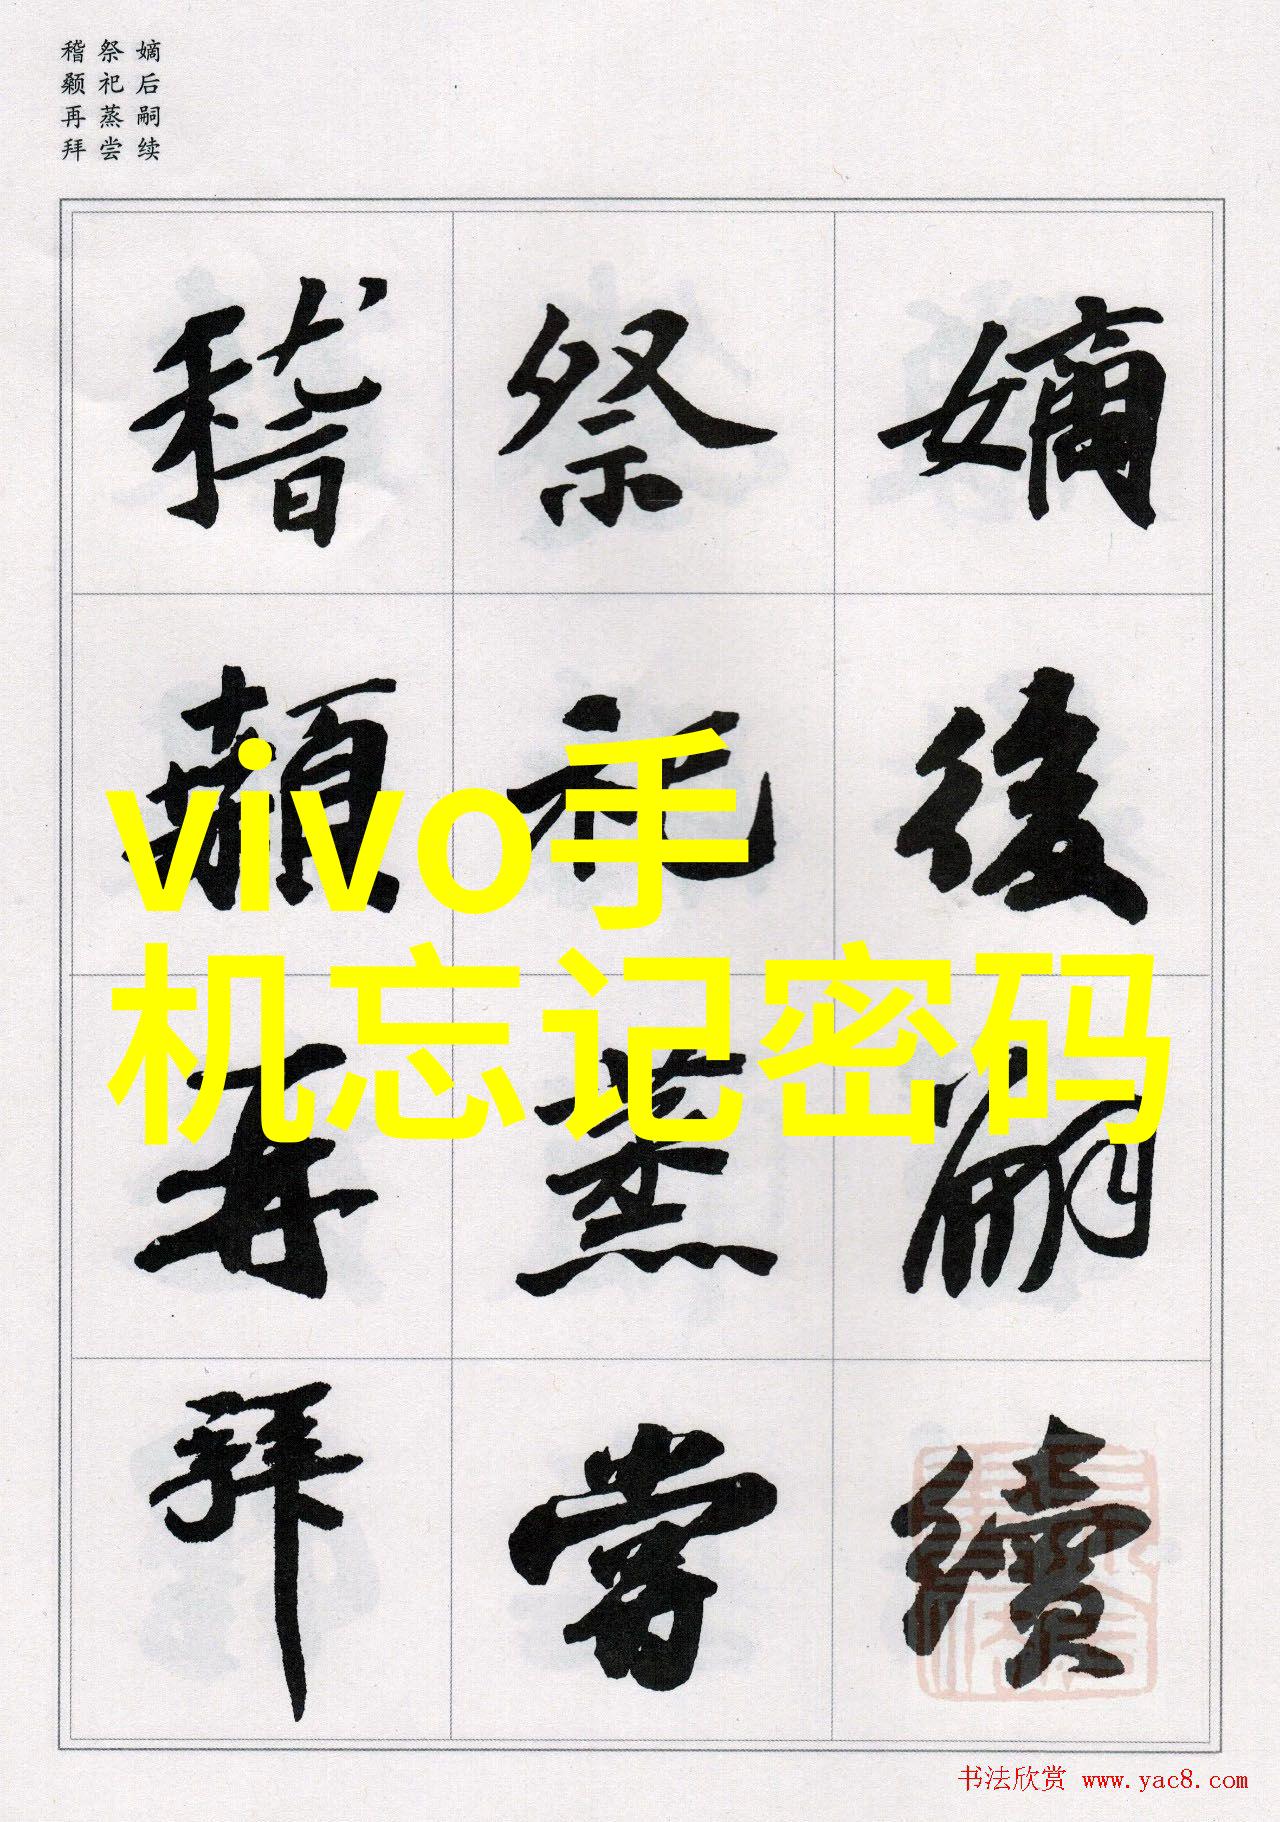 嫡后嗣续
祭祀蒸尝
稽颡再拜
嫡後嗣續
祭祀蒸嘗
稽顙再拜
vivo手
机忘记密码
书法欣赏 www.yac8.com